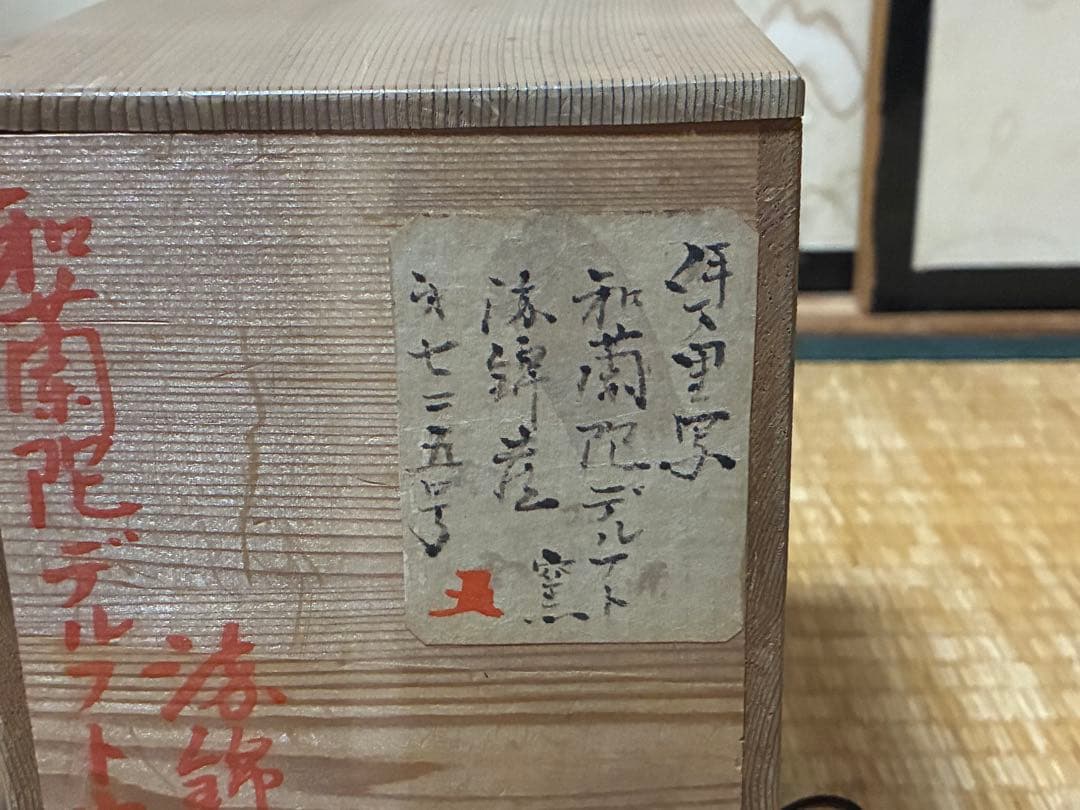 伊万里写
和蘭陀デルフト
窯
染錦
七二五号
染錦
和蘭陀デルフト